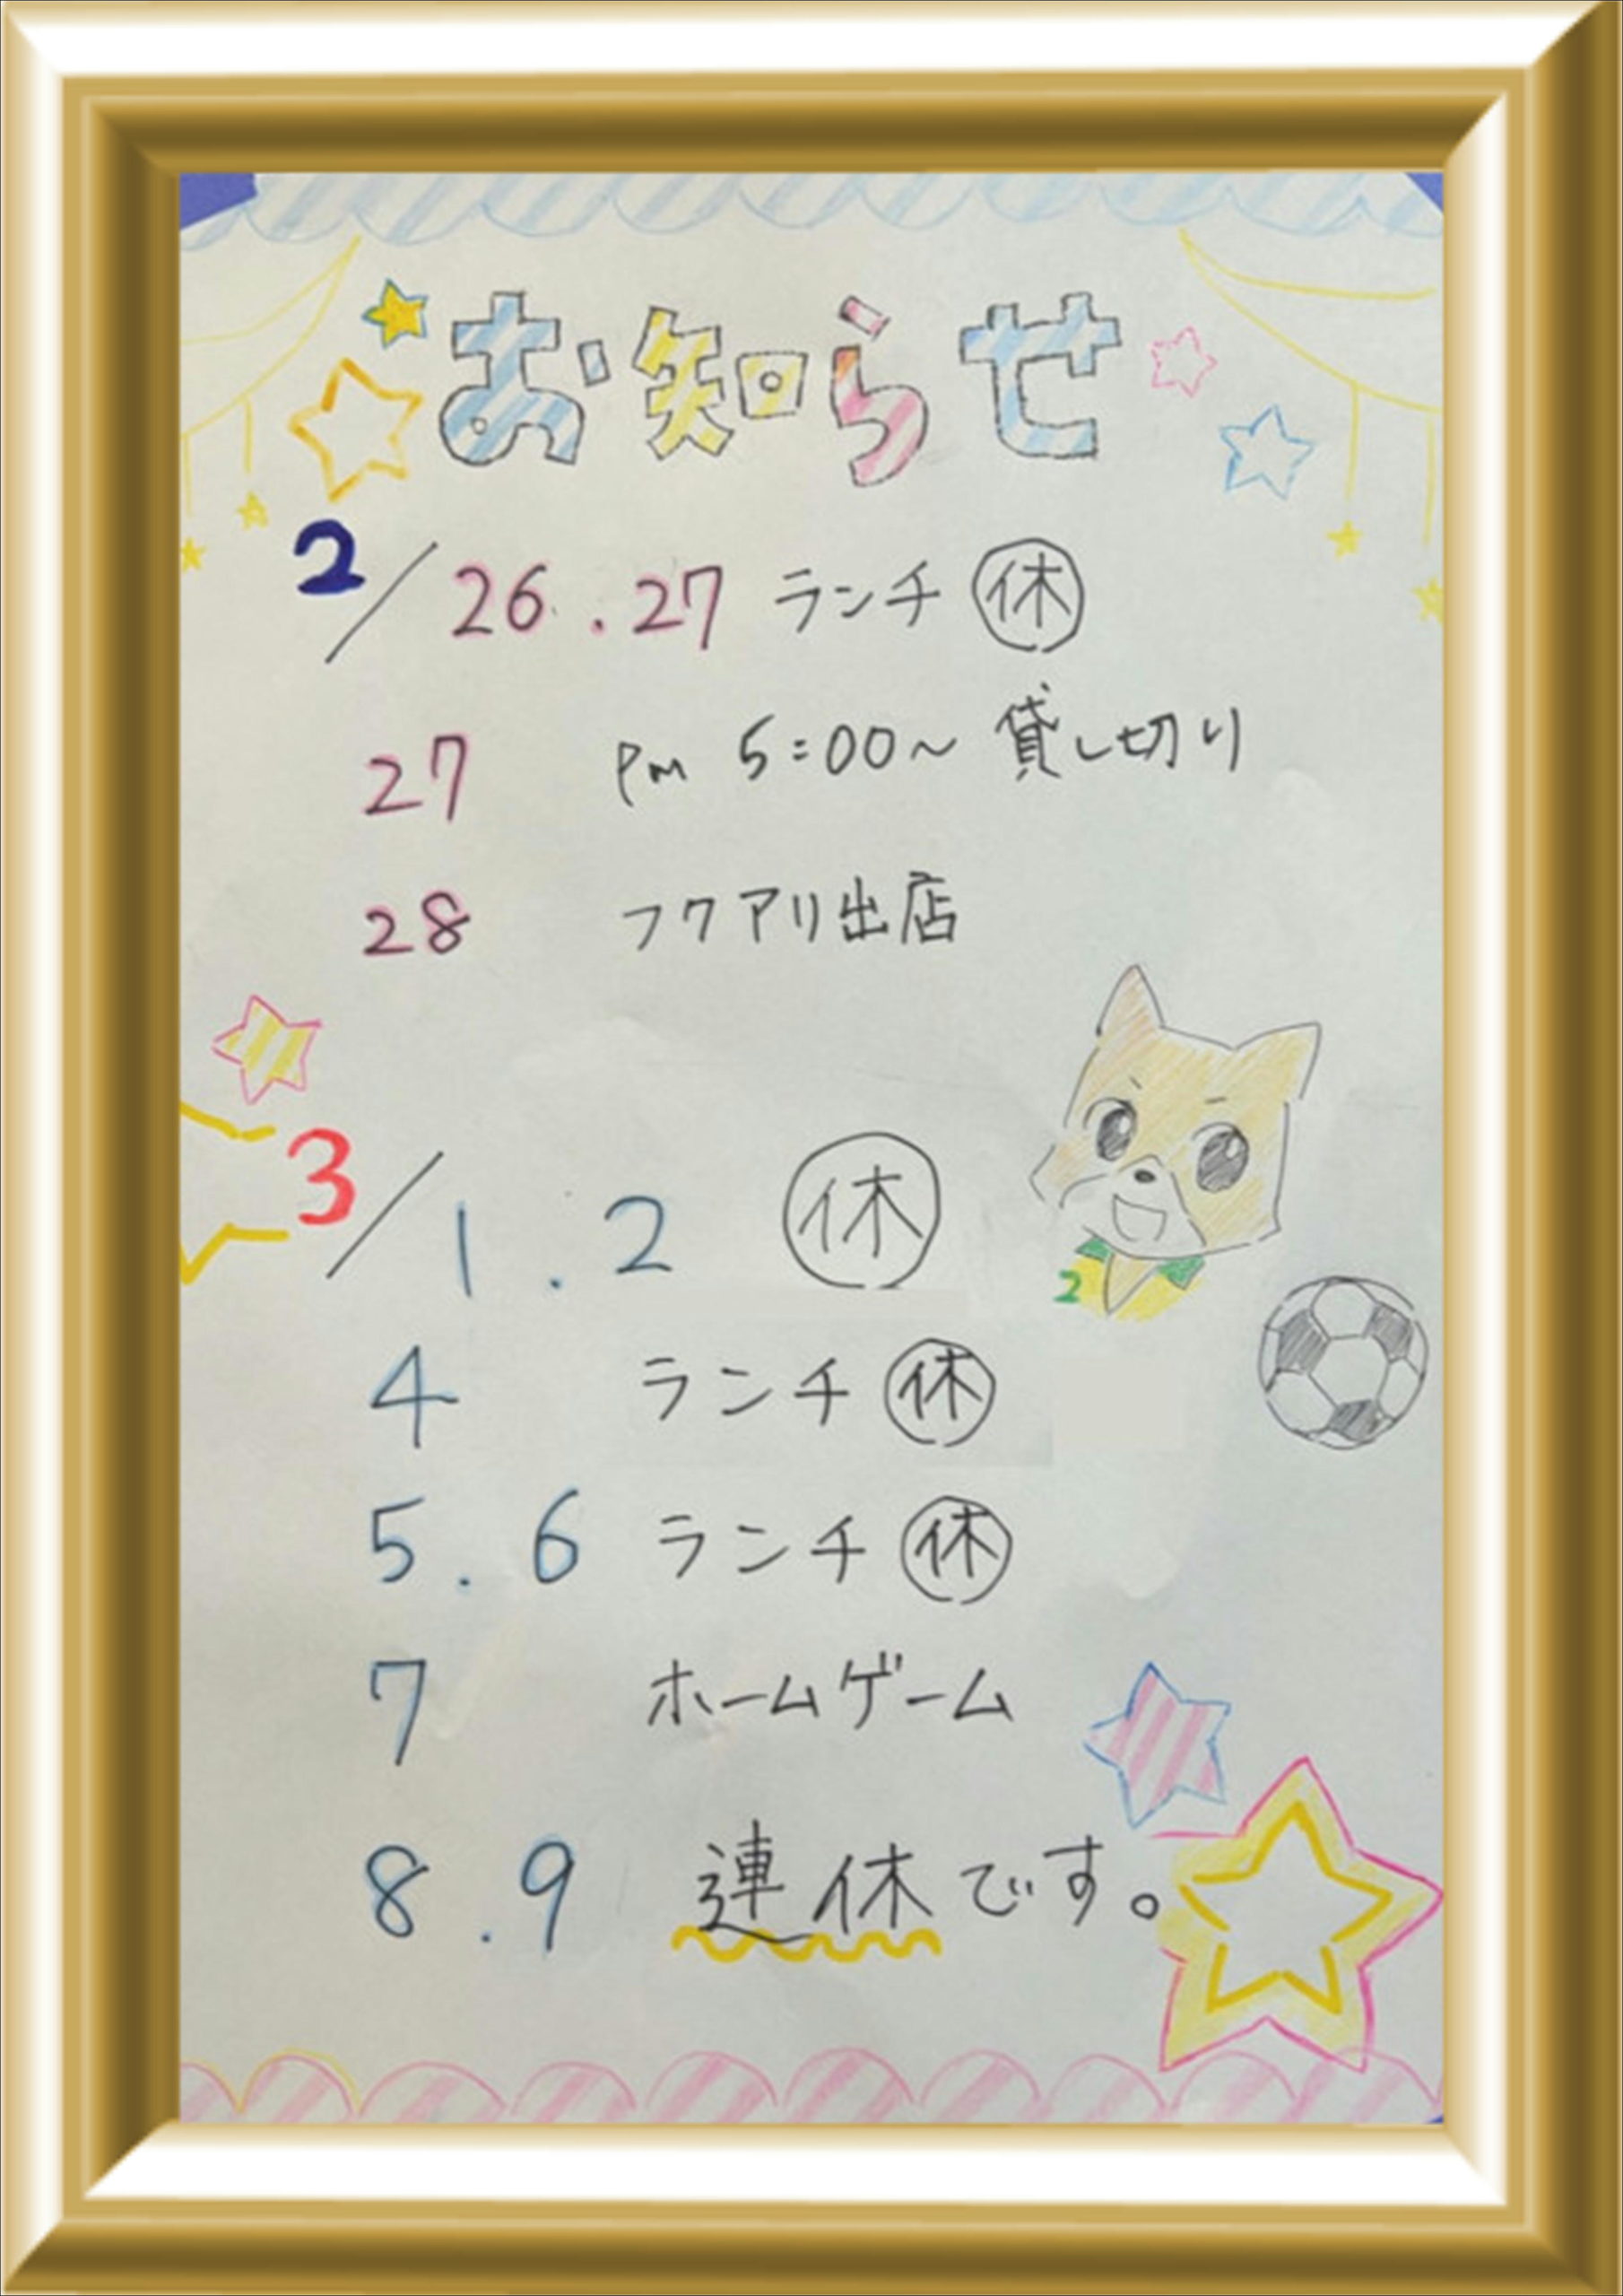 お知らせ
2/26.27 ランチ㊡
27 Pm 5:00~ 貸し切り
28 フクアリ出店
3/1.2 ㊡
2
4 ランチ㊡
5.6 ランチ㊡
7 ホームゲーム
8.9 連休です。